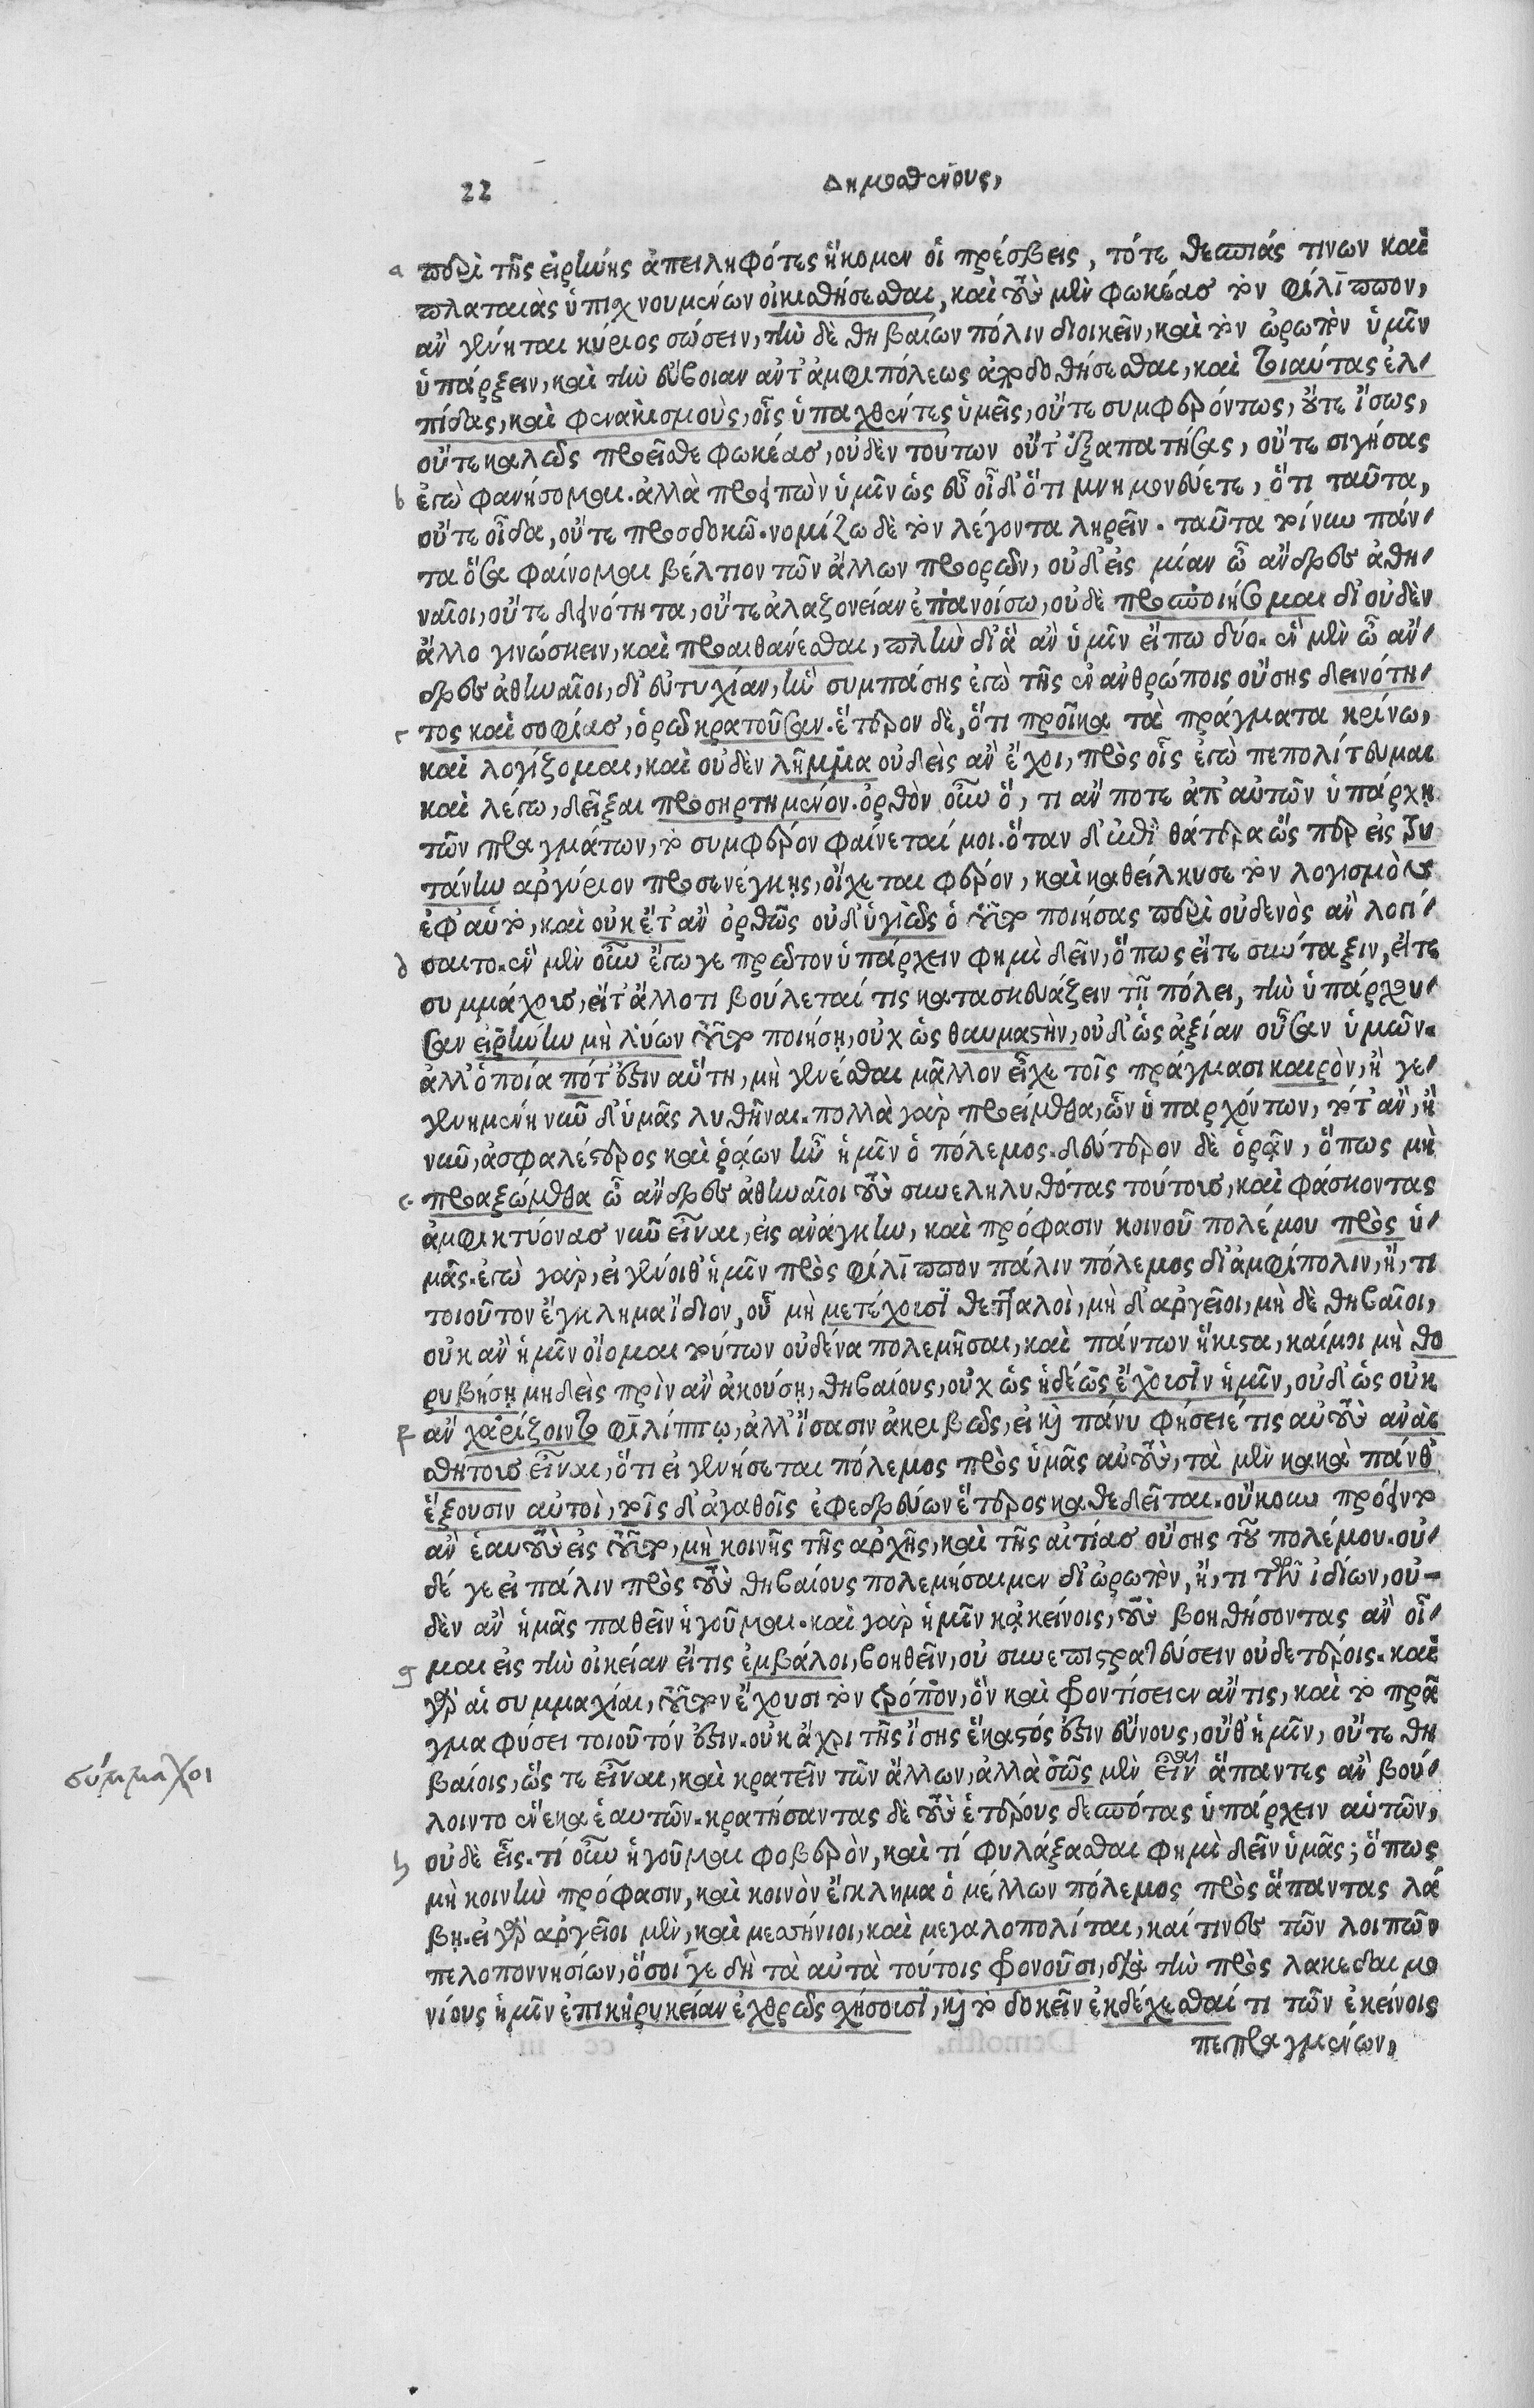 22
Δημοσθένους,
a περὶ τῆς εἰρήνης ἀπειληφότες ἥκομεν οἱ πρέσβεις, τότε θεσπιάς τινων καὶ
πλαταιὰς ὑπισχνουμένων οἰκισθήσεσθαι, καὶ τοὺς μὲν φωκέας τὸν φίλιππον,
ἂν γένηται κύριος σώσειν, τὴν δὲ θηβαίων πόλιν διοικεῖν, καὶ τὸν ὠρωπὸν ὑμῖν
ὑπάρξειν, καὶ τὴν εὔβοιαν ἀντ' ἀμφιπόλεως ἀποδοθήσεσθαι, καὶ τοιαύτας ἐλ-
πίδας, καὶ φενακισμοὺς, οἷς ὑπαχθέντες ὑμεῖς, οὔτε συμφερόντως, οὔτε ἴσως,
οὔτε καλῶς προεῖσθε φωκέας, οὐδὲν τούτων οὔτ' ἐξαπατήσας, οὔτε σιγήσας
b ἐγὼ φανήσομαι. ἀλλὰ προειπὼν ὑμῖν ὡς εὖ οἶδ' ὅτι μνημονεύετε, ὅτι ταῦτα,
οὔτε οἶδα, οὔτε προσδοκῶ. νομίζω δὲ τὸν λέγοντα ληρεῖν. ταῦτα τοίνυν πάν-
τα ὅσα φαίνομαι βέλτιον τῶν ἄλλων προορῶν, οὐδ' εἰς μίαν ὦ ἄνδρες ἀθη-
ναῖοι, οὔτε δεινότητα, οὔτε ἀλαζονείαν ἐπανοίσω, οὐδὲ προσποιήσομαι δι' οὐδὲν
ἄλλο γινώσκειν, καὶ προαισθάνεσθαι, πλὴν δι' ἃ ἂν ὑμῖν εἴπω δύο. ἓν μὲν ὦ ἄν-
δρες ἀθηναῖοι, δι' εὐτυχίαν, ἣν συμπάσης ἐγὼ τῆς ἐν ἀνθρώποις οὔσης δεινότη-
c τος καὶ σοφίας, ὁρῶ κρατοῦσαν. ἕτερον δὲ, ὅτι προῖκα τὰ πράγματα κρίνω,
καὶ λογίζομαι, καὶ οὐδὲν λῆμμα οὐδεὶς ἂν ἔχοι, πρὸς οἷς ἐγὼ πεπολίτευμαι
καὶ λέγω, δεῖξαι προσηρτημένον. ὀρθὸν οὖν ὅ, τι ἄν ποτε ἀπ' αὐτῶν ὑπάρχῃ
τῶν πραγμάτων, τὸ συμφέρον φαίνεταί μοι. ὅταν δ' ἐπὶ θάτερα ὥσπερ εἰς τρυ
τάνην ἀργύριον προσενέγκῃς, οἴχεται φέρον, καὶ καθείλκυσε τὸν λογισμὸν
ἐφ' αὑτὸ, καὶ οὐκ ἔτ' ἂν ὀρθῶς οὐδ' ὑγιῶς ὁ τοῦτο ποιήσας περὶ οὐδενὸς ἂν λογί-
d σαιτο. ἓν μὲν οὖν ἔγωγε πρῶτον ὑπάρχειν φημὶ δεῖν, ὅπως εἴτε σύνταξιν, εἴτε
συμμάχους, εἴτ' ἄλλο τι βούλεταί τις κατασκευάζειν τῇ πόλει, τὴν ὑπάρχου-
σαν εἰρήνην μὴ λύων τοῦτο ποιήσῃ, οὐχ ὡς θαυμαστὴν, οὐδ' ὡς ἀξίαν οὖσαν ὑμῶν.
ἀλλ' ὁποία ποτ' ἐστὶν αὕτη, μὴ γενέσθαι μᾶλλον εἶχε τοῖς πράγμασι καιρὸν, ἢ γε-
γενημένη νῦν δι' ὑμᾶς λυθῆναι. πολλὰ γὰρ προείμεθα, ὧν ὑπαρχόντων, τότ' ἂν, ἢ
νῦν, ἀσφαλέστερος καὶ ῥᾴων ἦν ἡμῖν ὁ πόλεμος. δεύτερον δὲ ὁρᾷν, ὅπως μὴ
e προαξώμεθα ὦ ἄνδρες ἀθηναῖοι τοὺς συνεληλυθότας τούτους, καὶ φάσκοντας
ἀμφικτύονας νῦν εἶναι, εἰς ἀνάγκην, καὶ πρόφασιν κοινοῦ πολέμου πρὸς ὑ-
μᾶς. ἐγὼ γὰρ, εἰ γένοιθ' ἡμῖν πρὸς φίλιππον πάλιν πόλεμος δι' ἀμφίπολιν, ἤ, τι
τοιοῦτον ἔγκλημα ἴδιον, οὗ μὴ μετέχουσι θετταλοὶ, μὴ δ' ἀργεῖοι, μὴ δὲ θηβαῖοι,
οὐκ ἂν ἡμῖν οἴομαι τούτων οὐδένα πολεμῆσαι, καὶ πάντων ἥκιστα, καί μοι μὴ θο
ρυβήσῃ μηδεὶς πρὶν ἂν ἀκούσῃ, θηβαίους, οὐχ ὡς ἡδέως ἔχουσιν ἡμῖν, οὐδ' ὡς οὐκ
f ἂν χαρίζοιντο φιλίππῳ, ἀλλ' ἴσασιν ἀκριβῶς, εἰ καὶ πάνυ φήσειέ τις αὐτοὺς ἀναισ
θήτους εἶναι, ὅτι εἰ γενήσεται πόλεμος πρὸς ὑμᾶς αὐτοὺς, τὰ μὲν κακὰ πάνθ'
ἕξουσιν αὐτοὶ, τοῖς δ' ἀγαθοῖς ἐφεδρεύων ἕτερος καθεδεῖται. οὔκουν πρόοιντο
ἂν ἑαυτοὺς εἰς τοῦτο, μὴ κοινῆς τῆς ἀρχῆς, καὶ τῆς αἰτίας οὔσης τοῦ πολέμου. οὐ-
δέ γε εἰ πάλιν πρὸς τοὺς θηβαίους πολεμήσαιμεν δι' ὠρωπὸν, ἤ, τι τῶν ἰδίων, οὐ-
δὲν ἂν ἡμᾶς παθεῖν ἡγοῦμαι. καὶ γὰρ ἡμῖν κᾀκείνοις, τοὺς βοηθήσοντας ἂν οἶ-
g μαι εἰς τὴν οἰκείαν εἴ τις ἐμβάλοι, βοηθεῖν, οὐ συνεπιστρατεύσειν οὐδετέροις. καὶ
γὰρ αἱ συμμαχίαι, τοῦτον ἔχουσι τὸν τρόπον, ὃν καὶ φροντίσειεν ἄν τις, καὶ τὸ πρᾶ
γμα φύσει τοιοῦτόν ἐστιν. οὐκ ἄχρι τῆς ἴσης ἕκαστός ἐστιν εὔνους, οὔθ' ἡμῖν, οὔτε θη
βαίοις, ὥς τε εἶναι, καὶ κρατεῖν τῶν ἄλλων, ἀλλὰ σῶς μὲν εἶναι ἅπαντες ἂν βού-
λοιντο ἕνεκα ἑαυτῶν. κρατήσαντας δὲ τοὺς ἑτέρους δεσπότας ὑπάρχειν αὑτῶν,
h οὐδὲ εἷς. τί οὖν ἡγοῦμαι φοβερὸν, καὶ τί φυλάξασθαι φημὶ δεῖν ὑμᾶς; ὅπως
μὴ κοινὴν πρόφασιν, καὶ κοινὸν ἔγκλημα ὁ μέλλων πόλεμος πρὸς ἅπαντας λά
βῃ. εἰ γὰρ ἀργεῖοι μὲν, καὶ μεσσήνιοι, καὶ μεγαλοπολῖται, καί τινες τῶν λοιπῶν
πελοποννησίων, ὅσοι γε δὴ τὰ αὐτὰ τούτοις φρονοῦσι, διὰ τὴν πρὸς λακεδαιμο
νίους ἡμῖν ἐπικηρυκείαν ἐχθρῶς σχήσουσι, καὶ τὸ δοκεῖν ἐκδέχεσθαί τι τῶν ἐκείνοις
πεπραγμένων,
σύμμαχοι